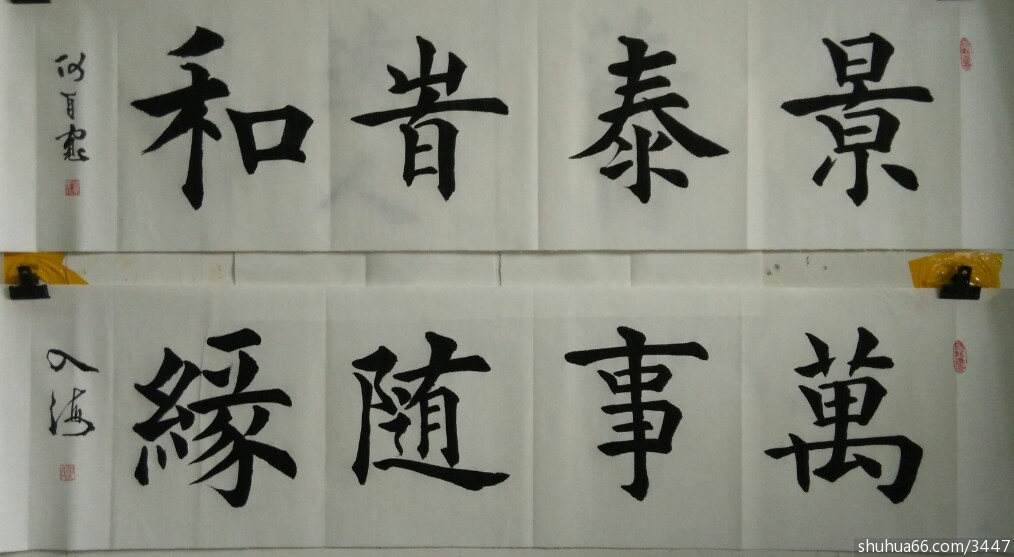 景泰旹和
萬事随緣
入海
shuhua66.com/3447